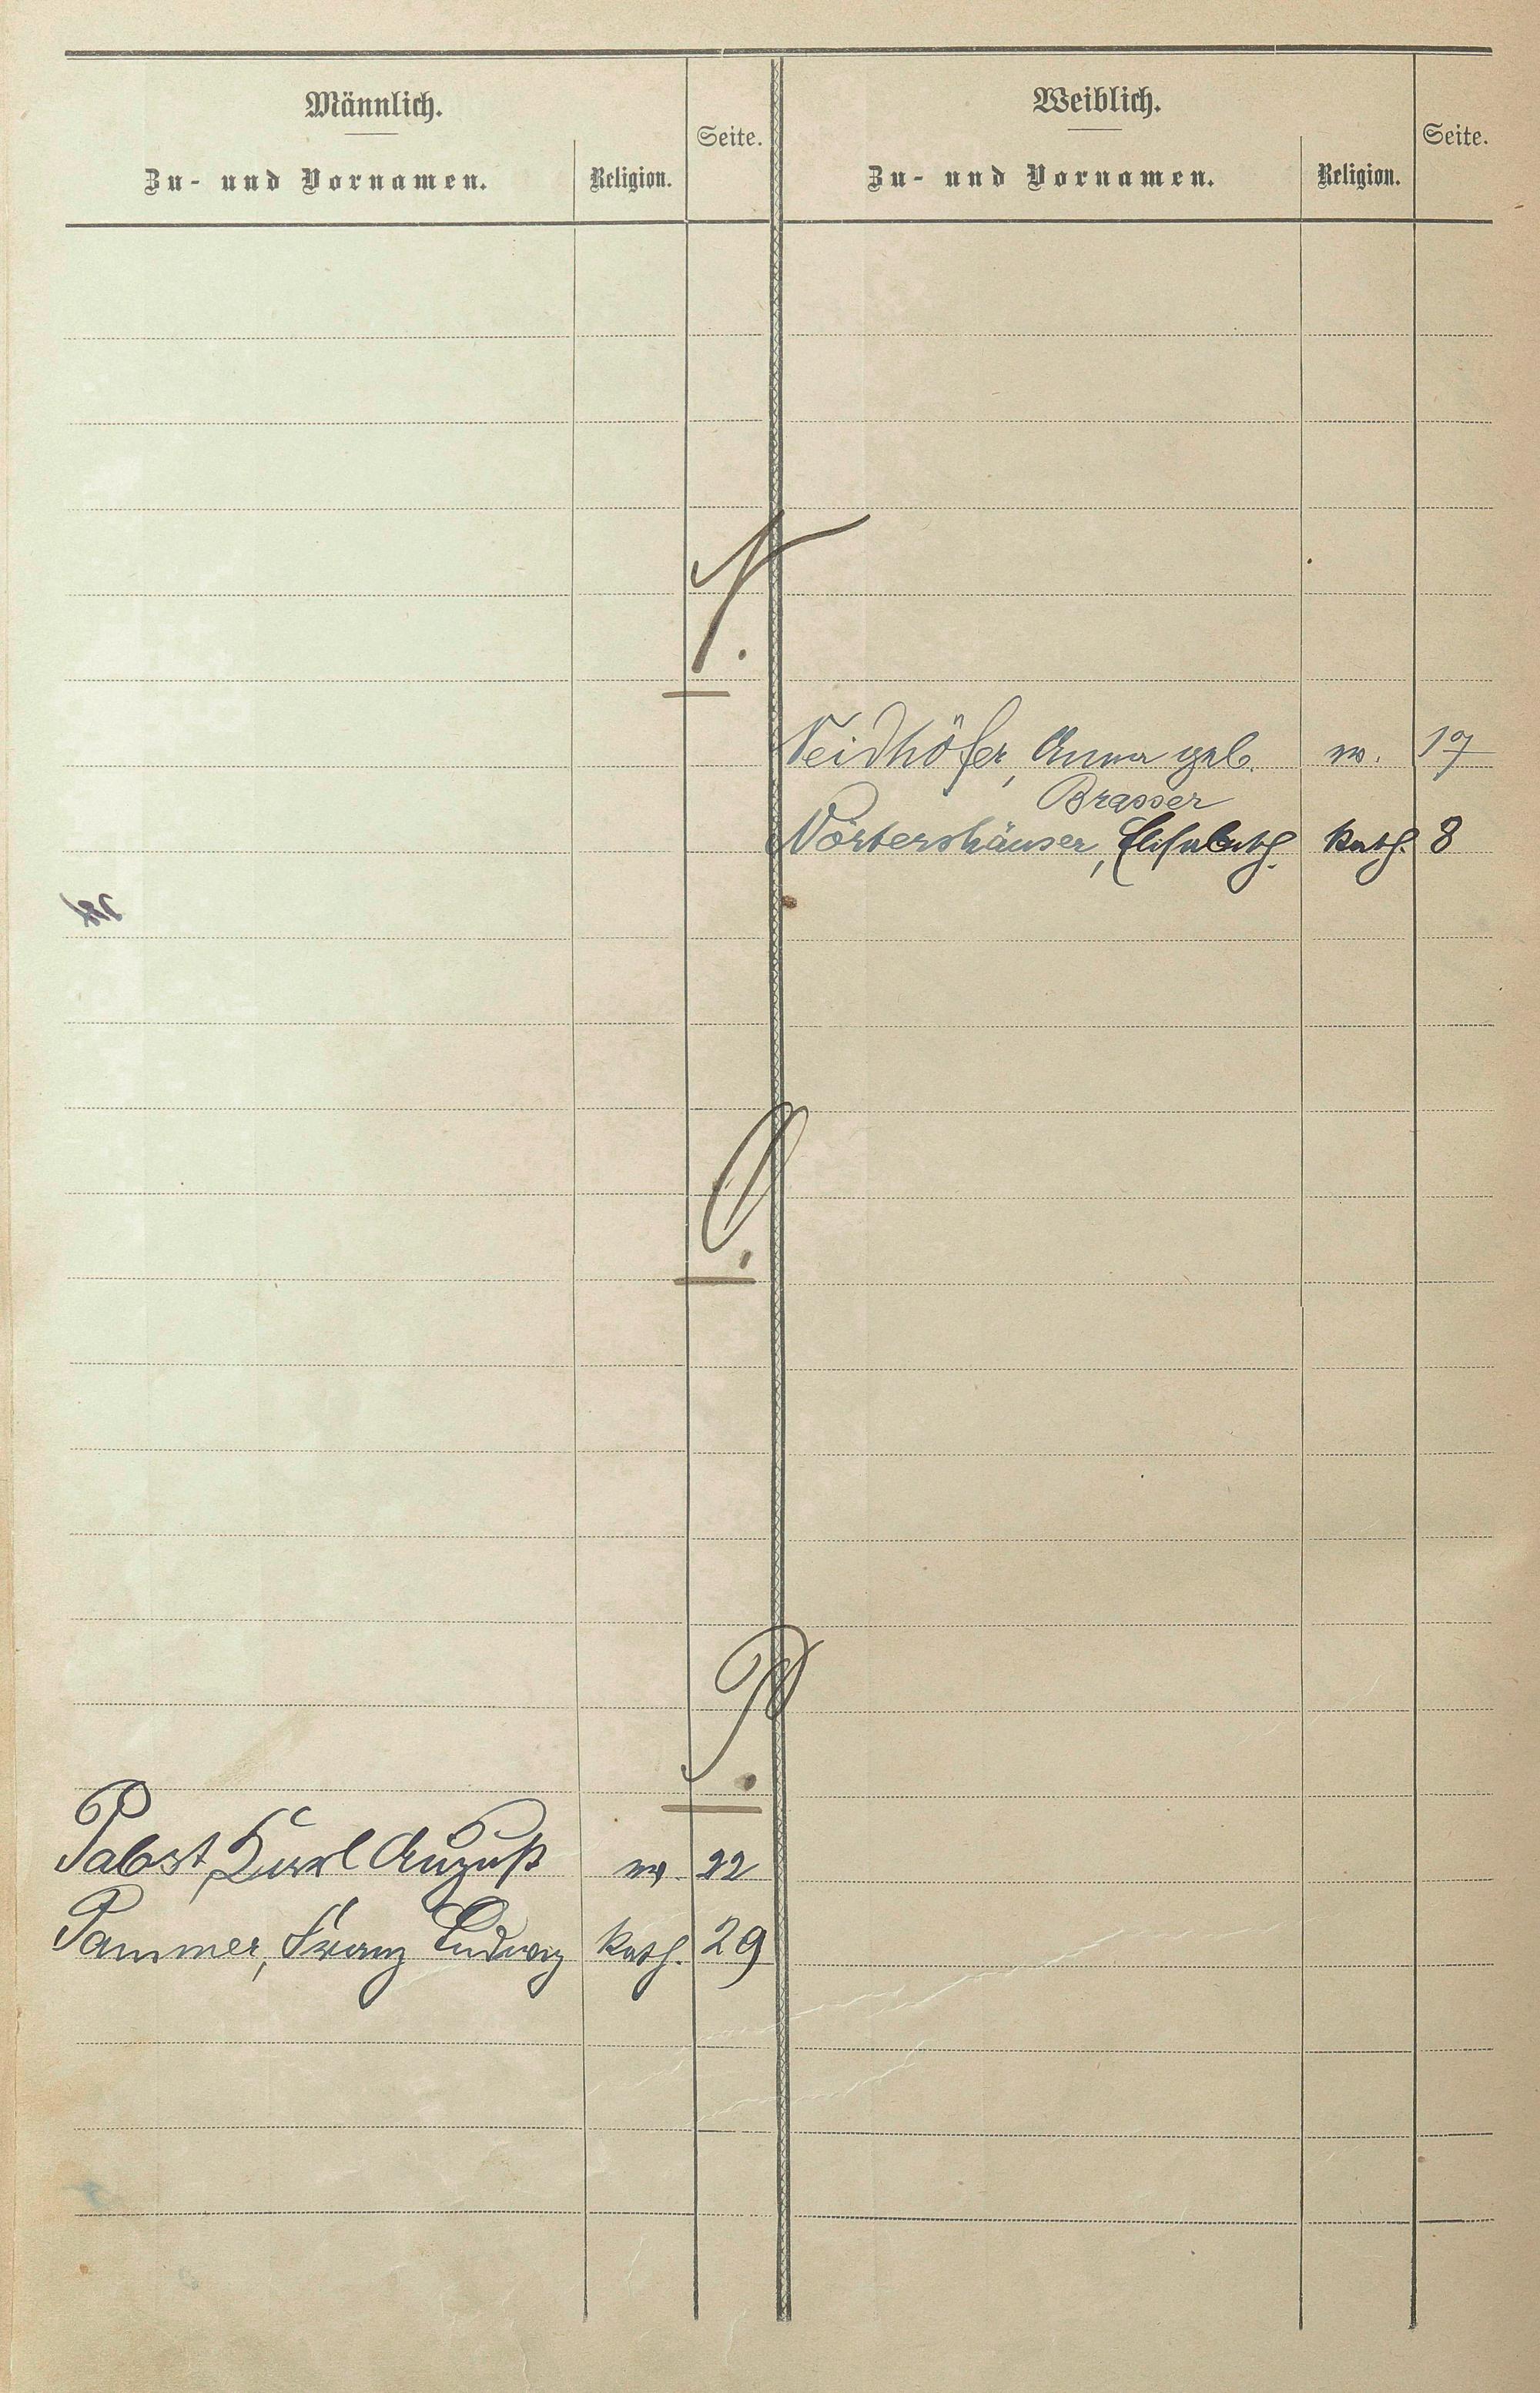 Männlich.
Zu- und Vornamen.
Religion.
Seite.
Weiblich.
Zu- und Vornamen.
Religion.
Seite.
N.
Neidhöfer, Anna geb. 17
Brasser
Nörtershäuser, Elisabeth. kath. 8
O.
P.
Pabst, Karl August 22
Pammer, Franz Ludwig kath. 29